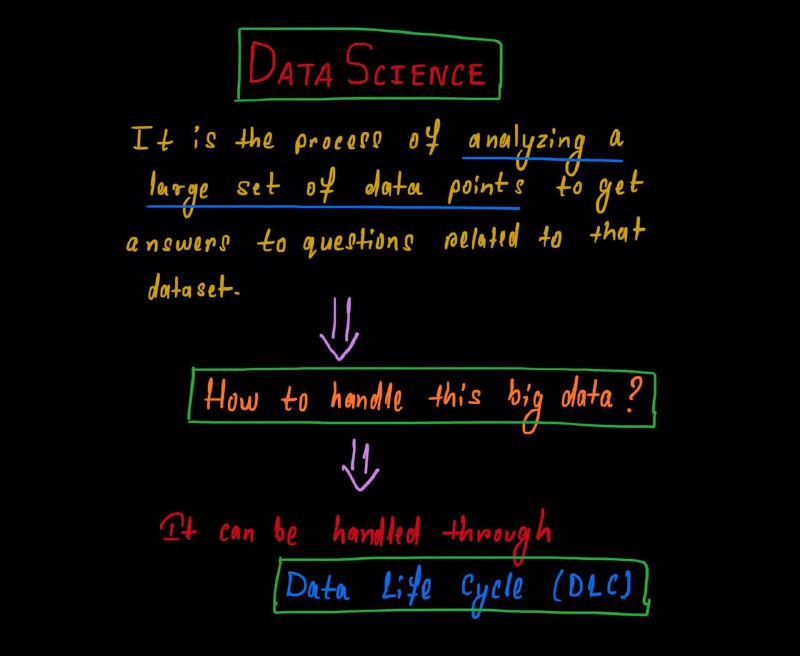 DATA SCIENCE
It is the process of analyzing a
large set of data points to get
answers to questions related to that
dataset.
How to handle this big data?
It can be handled through
Data Life Cycle (DLC)